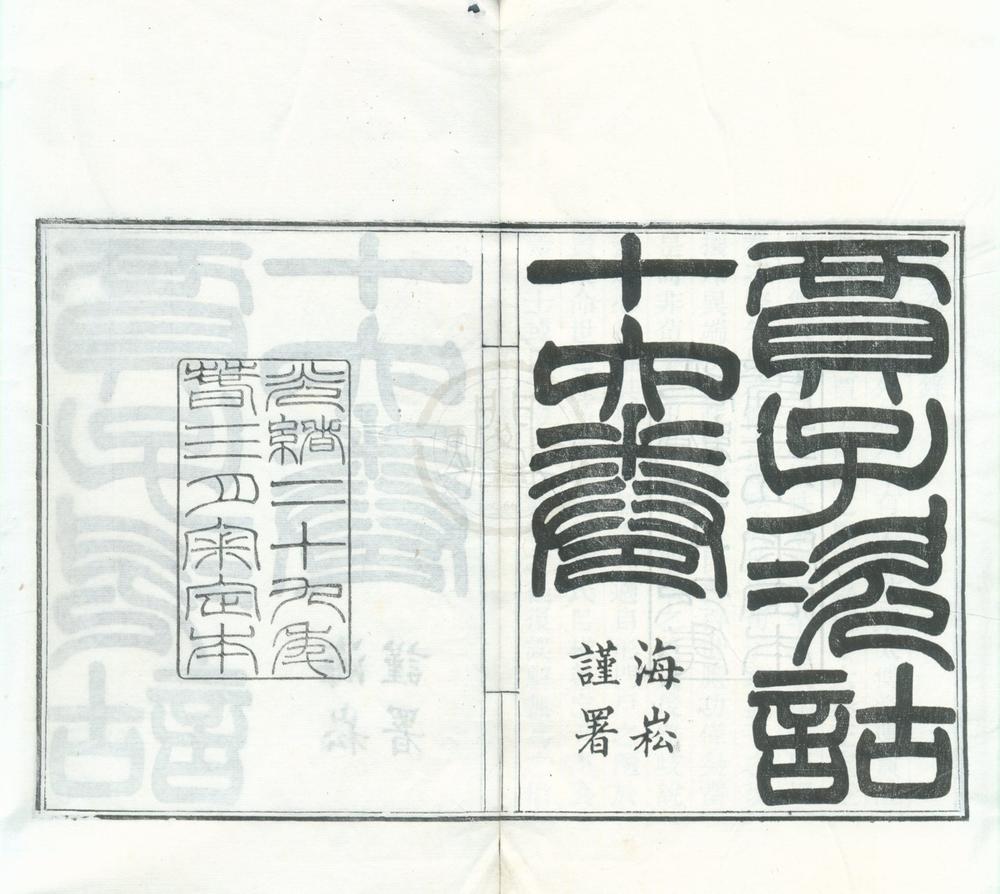 賈子次詁
十六卷
海崧
謹署
光緒二十九年
春三月栞定本